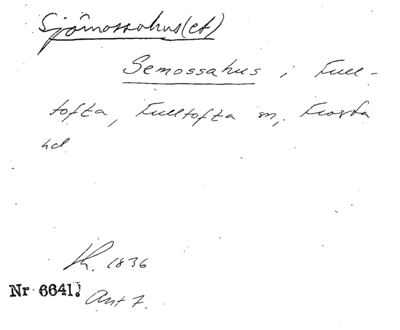 Sjömossahus(et)
Semossahus i Full-
tofta, Fulltofta sn, Frosta
hd
1836
Nr 6641. Ant 7.